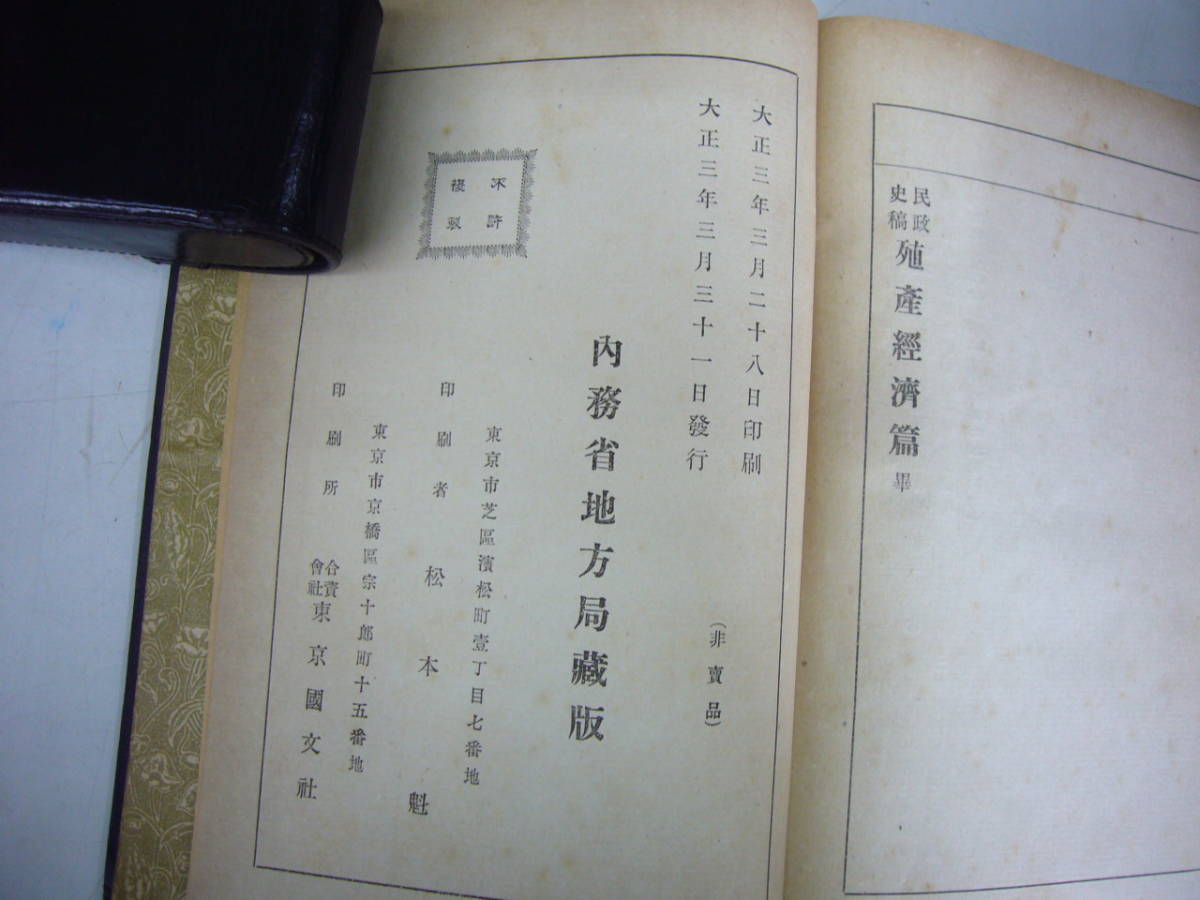 民政史稿 殖產經濟篇 畢
大正三年三月二十八日印刷
大正三年三月三十一日發行
(非賣品)
內務省地方局藏版
東京市芝區濱松町壹丁目七番地
印刷者 松本魁
東京市京橋區宗十郎町十五番地
印刷所 合資會社 東京國文社
不許
複製